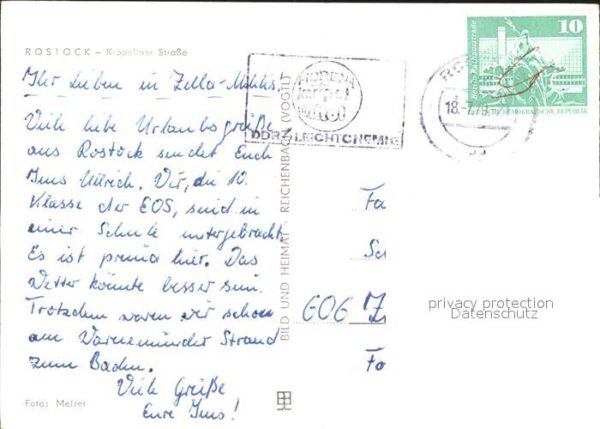 ROSTOCK – Kröpeliner Straße
Ihr Lieben in Zella-Mehlis,
Viele liebe Urlaubsgrüße
aus Rostock sendet Euch
Jens Ullrich. Wir, die 10.
Klasse der EOS, sind in
einer Schule untergebracht.
Es ist prima hier. Das
Wetter könnte besser sein.
Trotzdem waren wir schon
am Warnemünder Strand
zum Baden.
Viele Grüße
Eure Jens!
Foto: Melzer
BILD UND HEIMAT REICHENBACH (VOGTL)
FLORENA
DDR-LEICHTCHEMIE
10
DEUTSCHE DEMOKRATISCHE REPUBLIK
18.-7.79
Fa
606 Z
Fa
privacy protection
Datenschutz